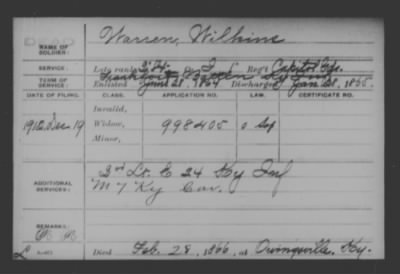 DEAD
NAME OF SOLDIER: Warren, Wilkins
SERVICE: Late rank, 2" Lt. Co. Reg't Capital Gds.
Frankfort Ky
TERM OF SERVICE: Enlisted 1864 Discharged Jan. 1865.
DATE OF FILING. CLASS. APPLICATION NO. LAW. CERTIFICATE NO.
Invalid,
Dec 19 Widow, 998405
Minor,
ADDITIONAL SERVICES: 2nd Lt. E 24 Ky Inf
M 7 Ky Cav.
REMARKS:
Died Feb. 28, 1866, at Owingsville, Ky.